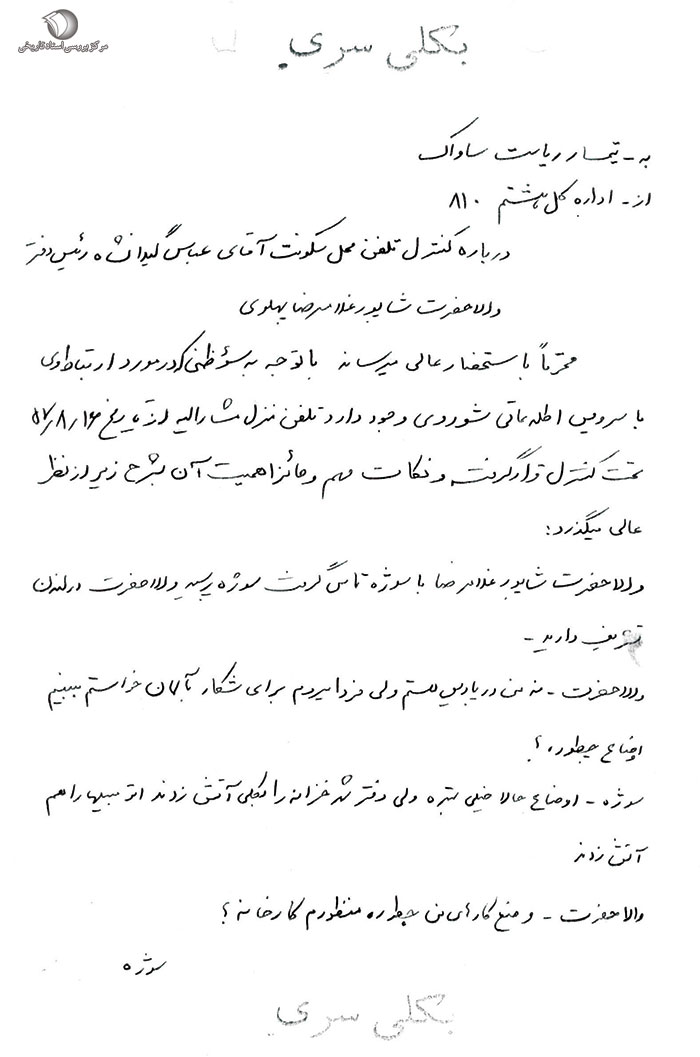 مرکز بررسی اسناد تاریخی
بکلی سری
به - تیمسار ریاست ساواک
از - اداره کل هشتم ۸۱۰
درباره کنترل تلفن محل سکونت آقای عباس گیلانشاه رئیس دفتر
والاحضرت شاپور غلامرضا پهلوی
محترماً باستحضار عالی میرساند با توجه به سوءظنی که در مورد ارتباط وی
با سرویس اطلاعاتی شوروی وجود دارد تلفن منزل مشارالیه از تاریخ ۵۷/۸/۱۶
تحت کنترل قرار گرفته و نکات مهم و حائز اهمیت آن بشرح زیر از نظر
عالی میگذرد:
والاحضرت شاپور غلامرضا با سوژه تماس گرفت سوژه پرسید والاحضرت در لندن
تشریف دارید -
والاحضرت - نه من در پاریس هستم ولی فردا میروم برای شکار بآلمان خواستم ببینم
اوضاع چطوره؟
سوژه - اوضاع حالا خیلی بهتره ولی دفتر خزانه را بکلی آتش زدند اتومبیلها را هم
آتش زدند
والاحضرت - وضع کارهای من چطوره منظورم کارخانه؟
سوژه
بکلی سری